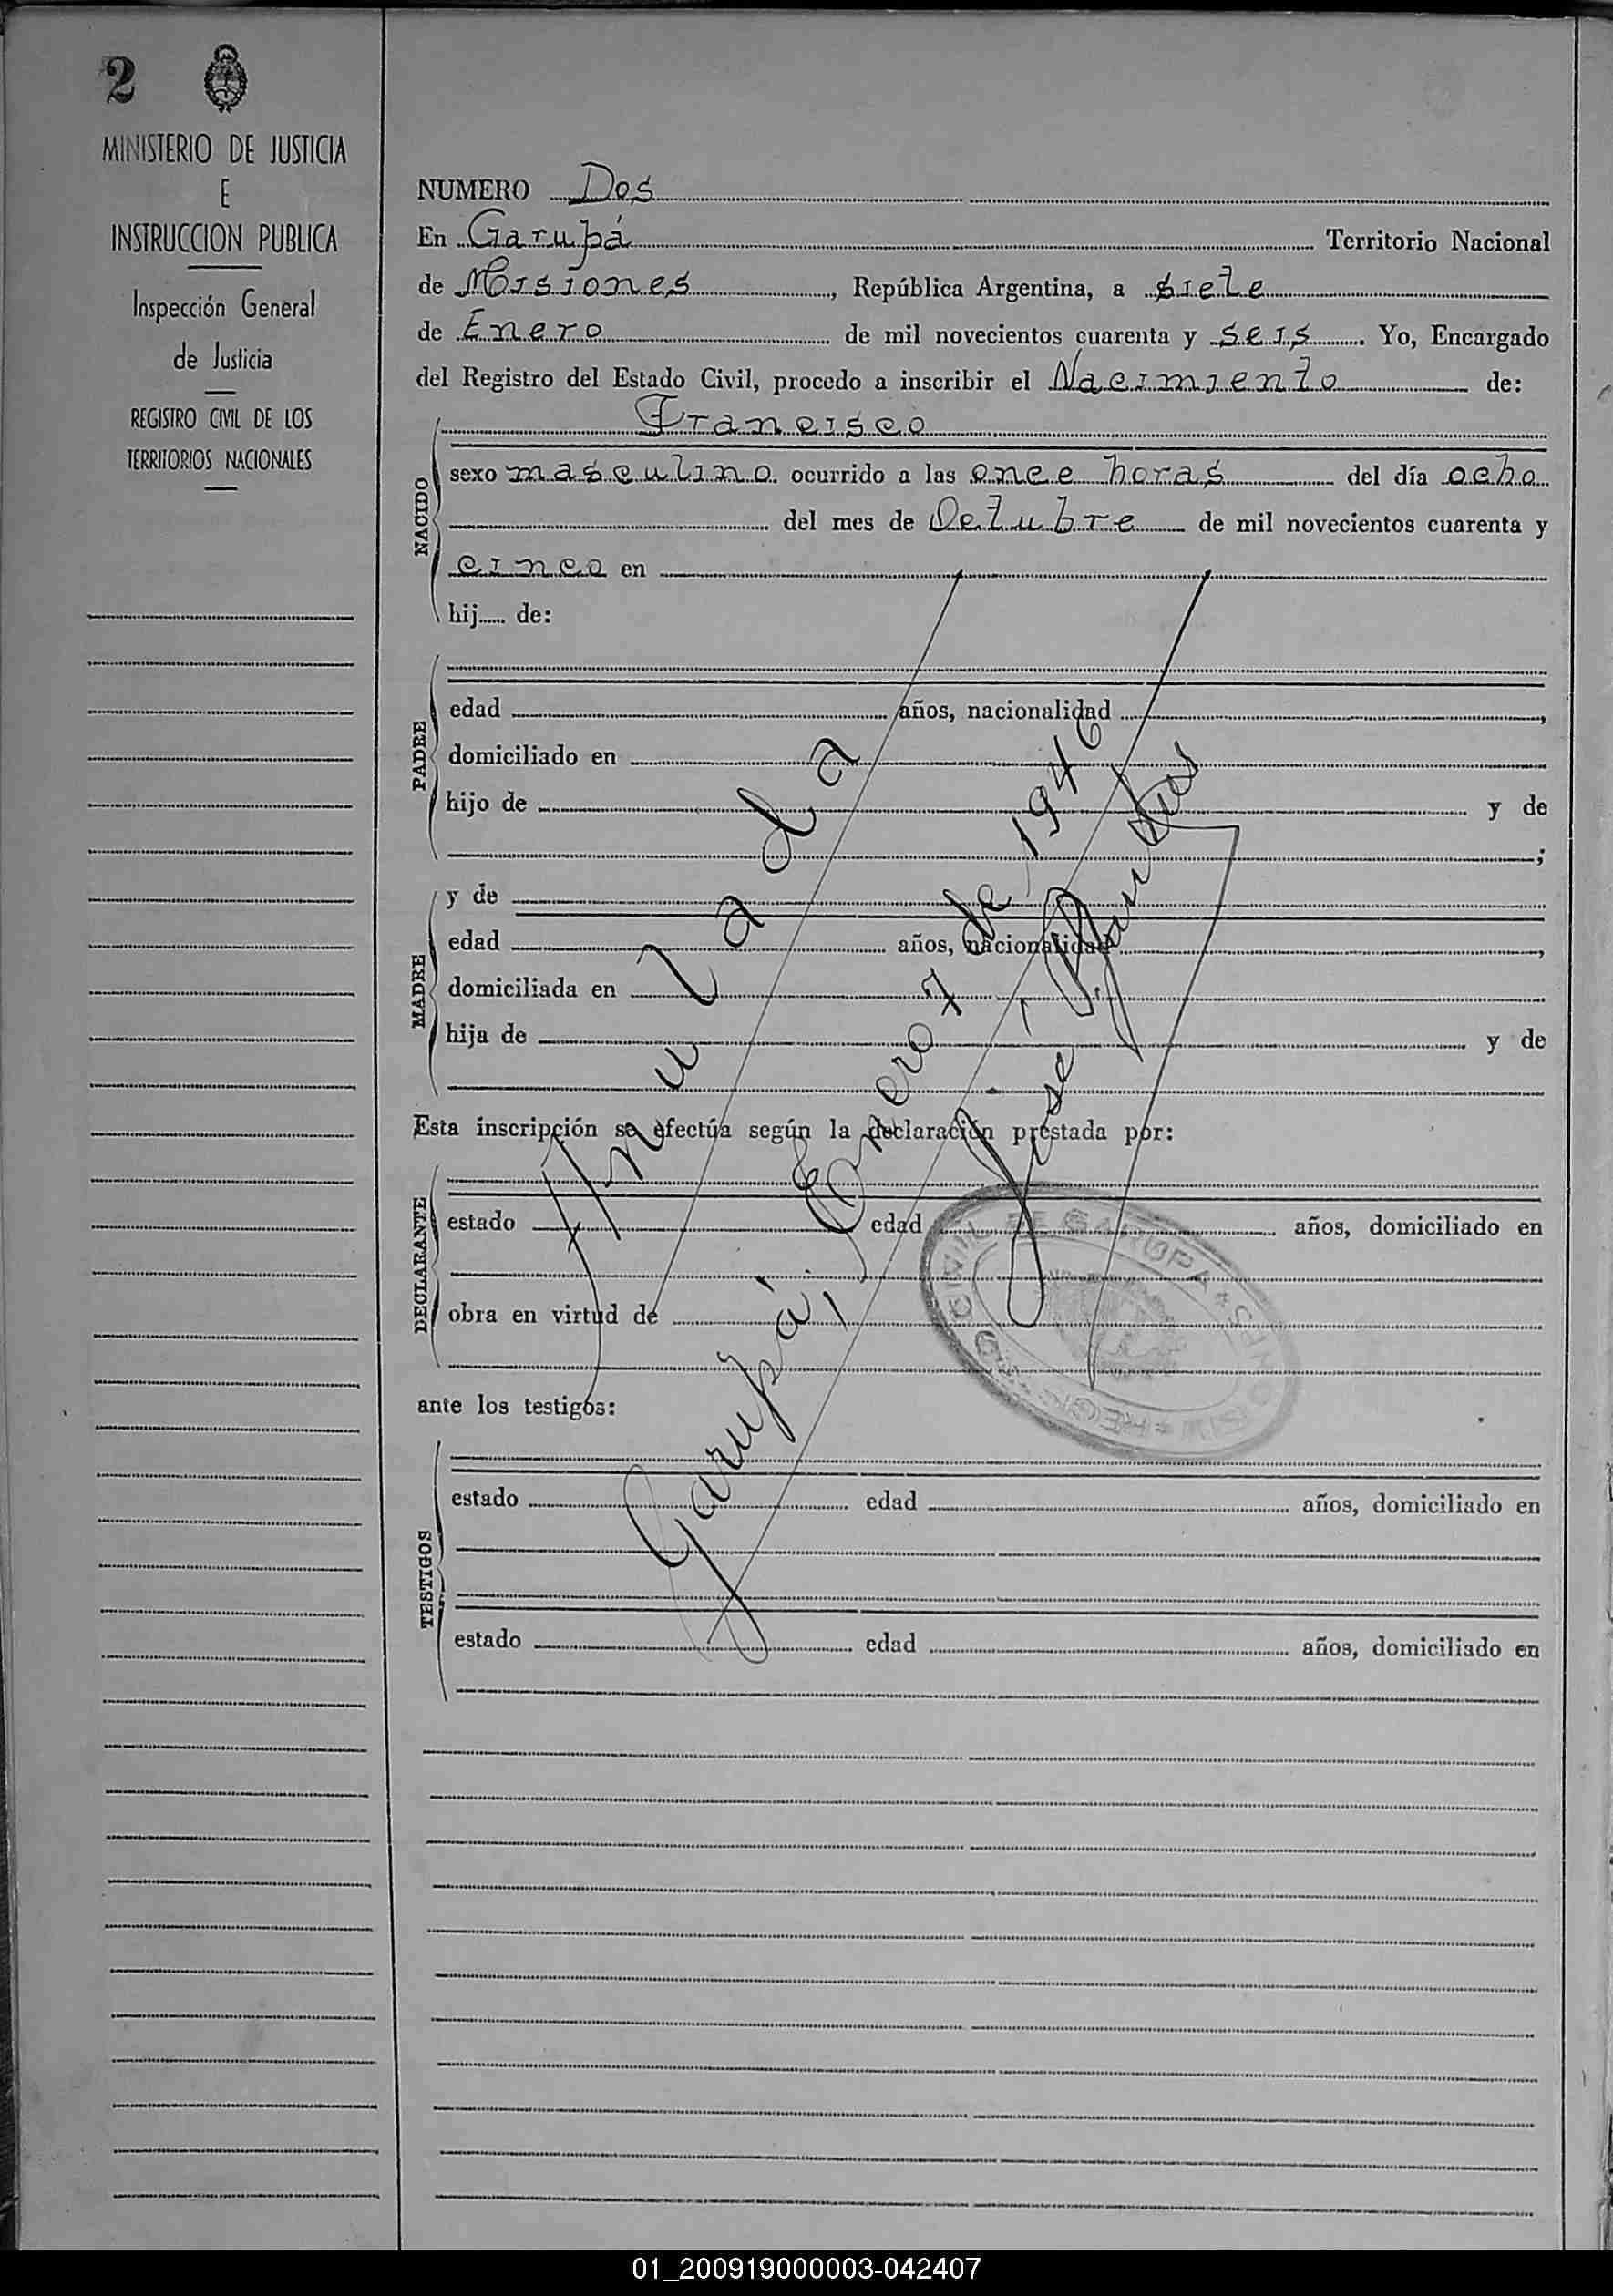 2
MINISTERIO DE JUSTICIA
E
INSTRUCCION PUBLICA
Inspección General
de Justicia
REGISTRO CIVIL DE LOS
TERRITORIOS NACIONALES
NUMERO Dos
En Garupá Territorio Nacional
de Misiones, República Argentina, a siete
de Enero de mil novecientos cuarenta y seis. Yo, Encargado
del Registro del Estado Civil, procedo a inscribir el Nacimiento de:
Francisco
NACIDO
sexo masculino ocurrido a las once horas del día ocho
del mes de Octubre de mil novecientos cuarenta y
cinco en
hij de:
PADRE
edad años, nacionalidad ,
domiciliado en
hijo de y de
;
MADRE
y de
edad años, nacionalidad ,
domiciliada en
hija de y de
Esta inscripción se efectúa según la declaración prestada por:
DECLARANTE
estado edad años, domiciliado en
obra en virtud de
ante los testigos:
TESTIGOS
estado edad años, domiciliado en
estado edad años, domiciliado en
Anulada
Garupá, Enero 7 de 1946
José
REGISTRO CIVIL DE GARUPA * MISIONES *
01_200919000003-042407